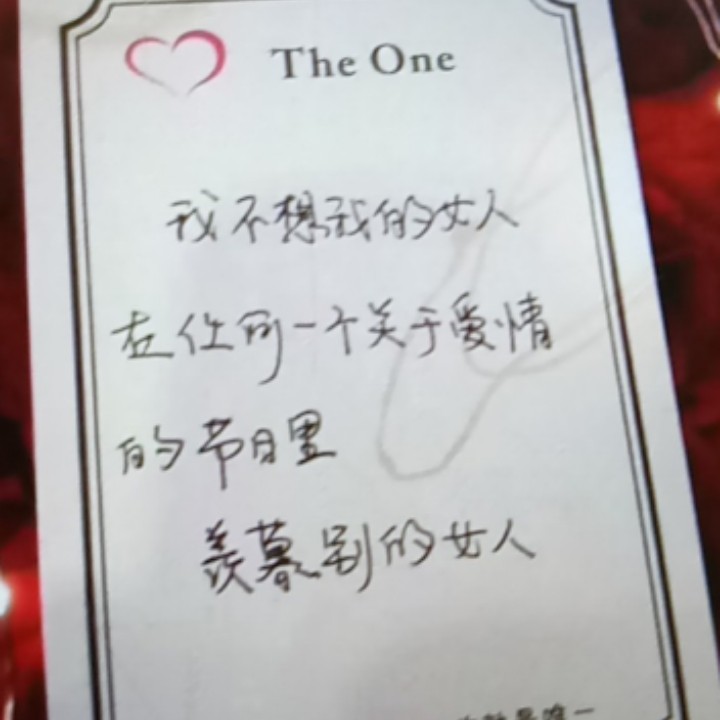 The One
我不想我的女人
在任何一个关于爱情
的节日里
羡慕别的女人